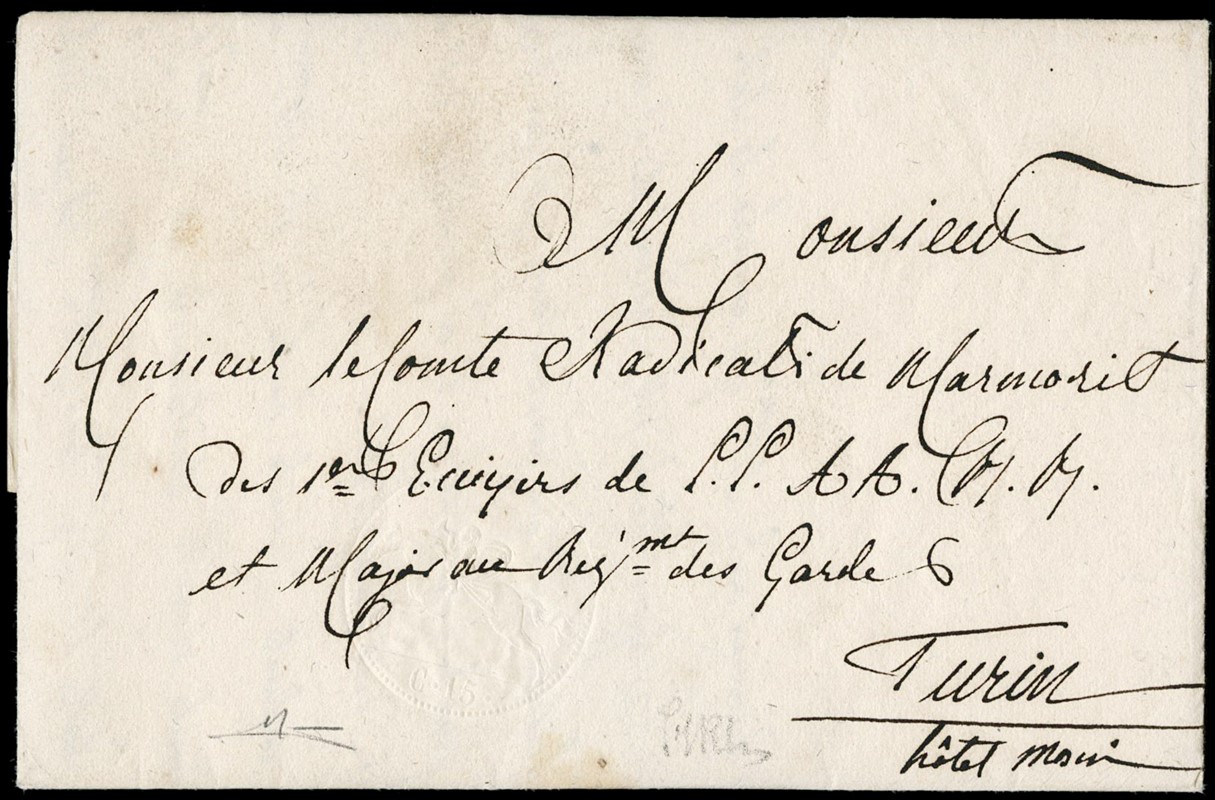 Monsieur
Monsieur le Comte Radicati de Marmorit
des 1er Ecuyirs de L.L. A A. R. R.
et Major au Regmt des Gardes
C. 15
Turin
hôtel